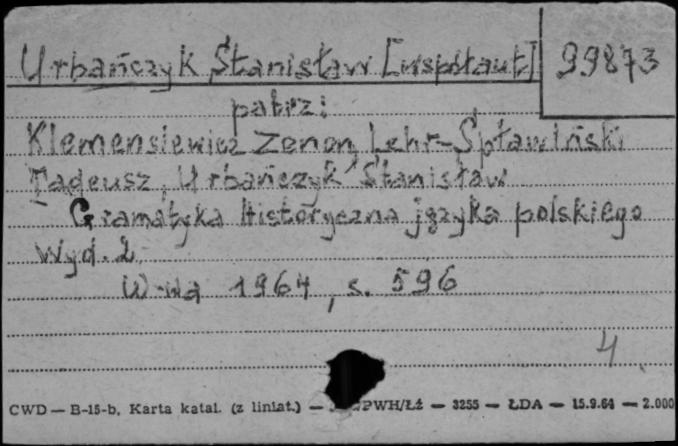 Urbańczyk Stanisław [współaut.] 99873
patrz:
Klemensiewicz Zenon, Lehr-Spławiński
Tadeusz, Urbańczyk Stanisław
Gramatyka historyczna języka polskiego
Wyd. 2
W-wa 1964, s. 596
4
CWD — B-15-b, Karta katal. (z liniat.) — PWH/Łź — 3255 — ŁDA — 15.9.64 — 2.000